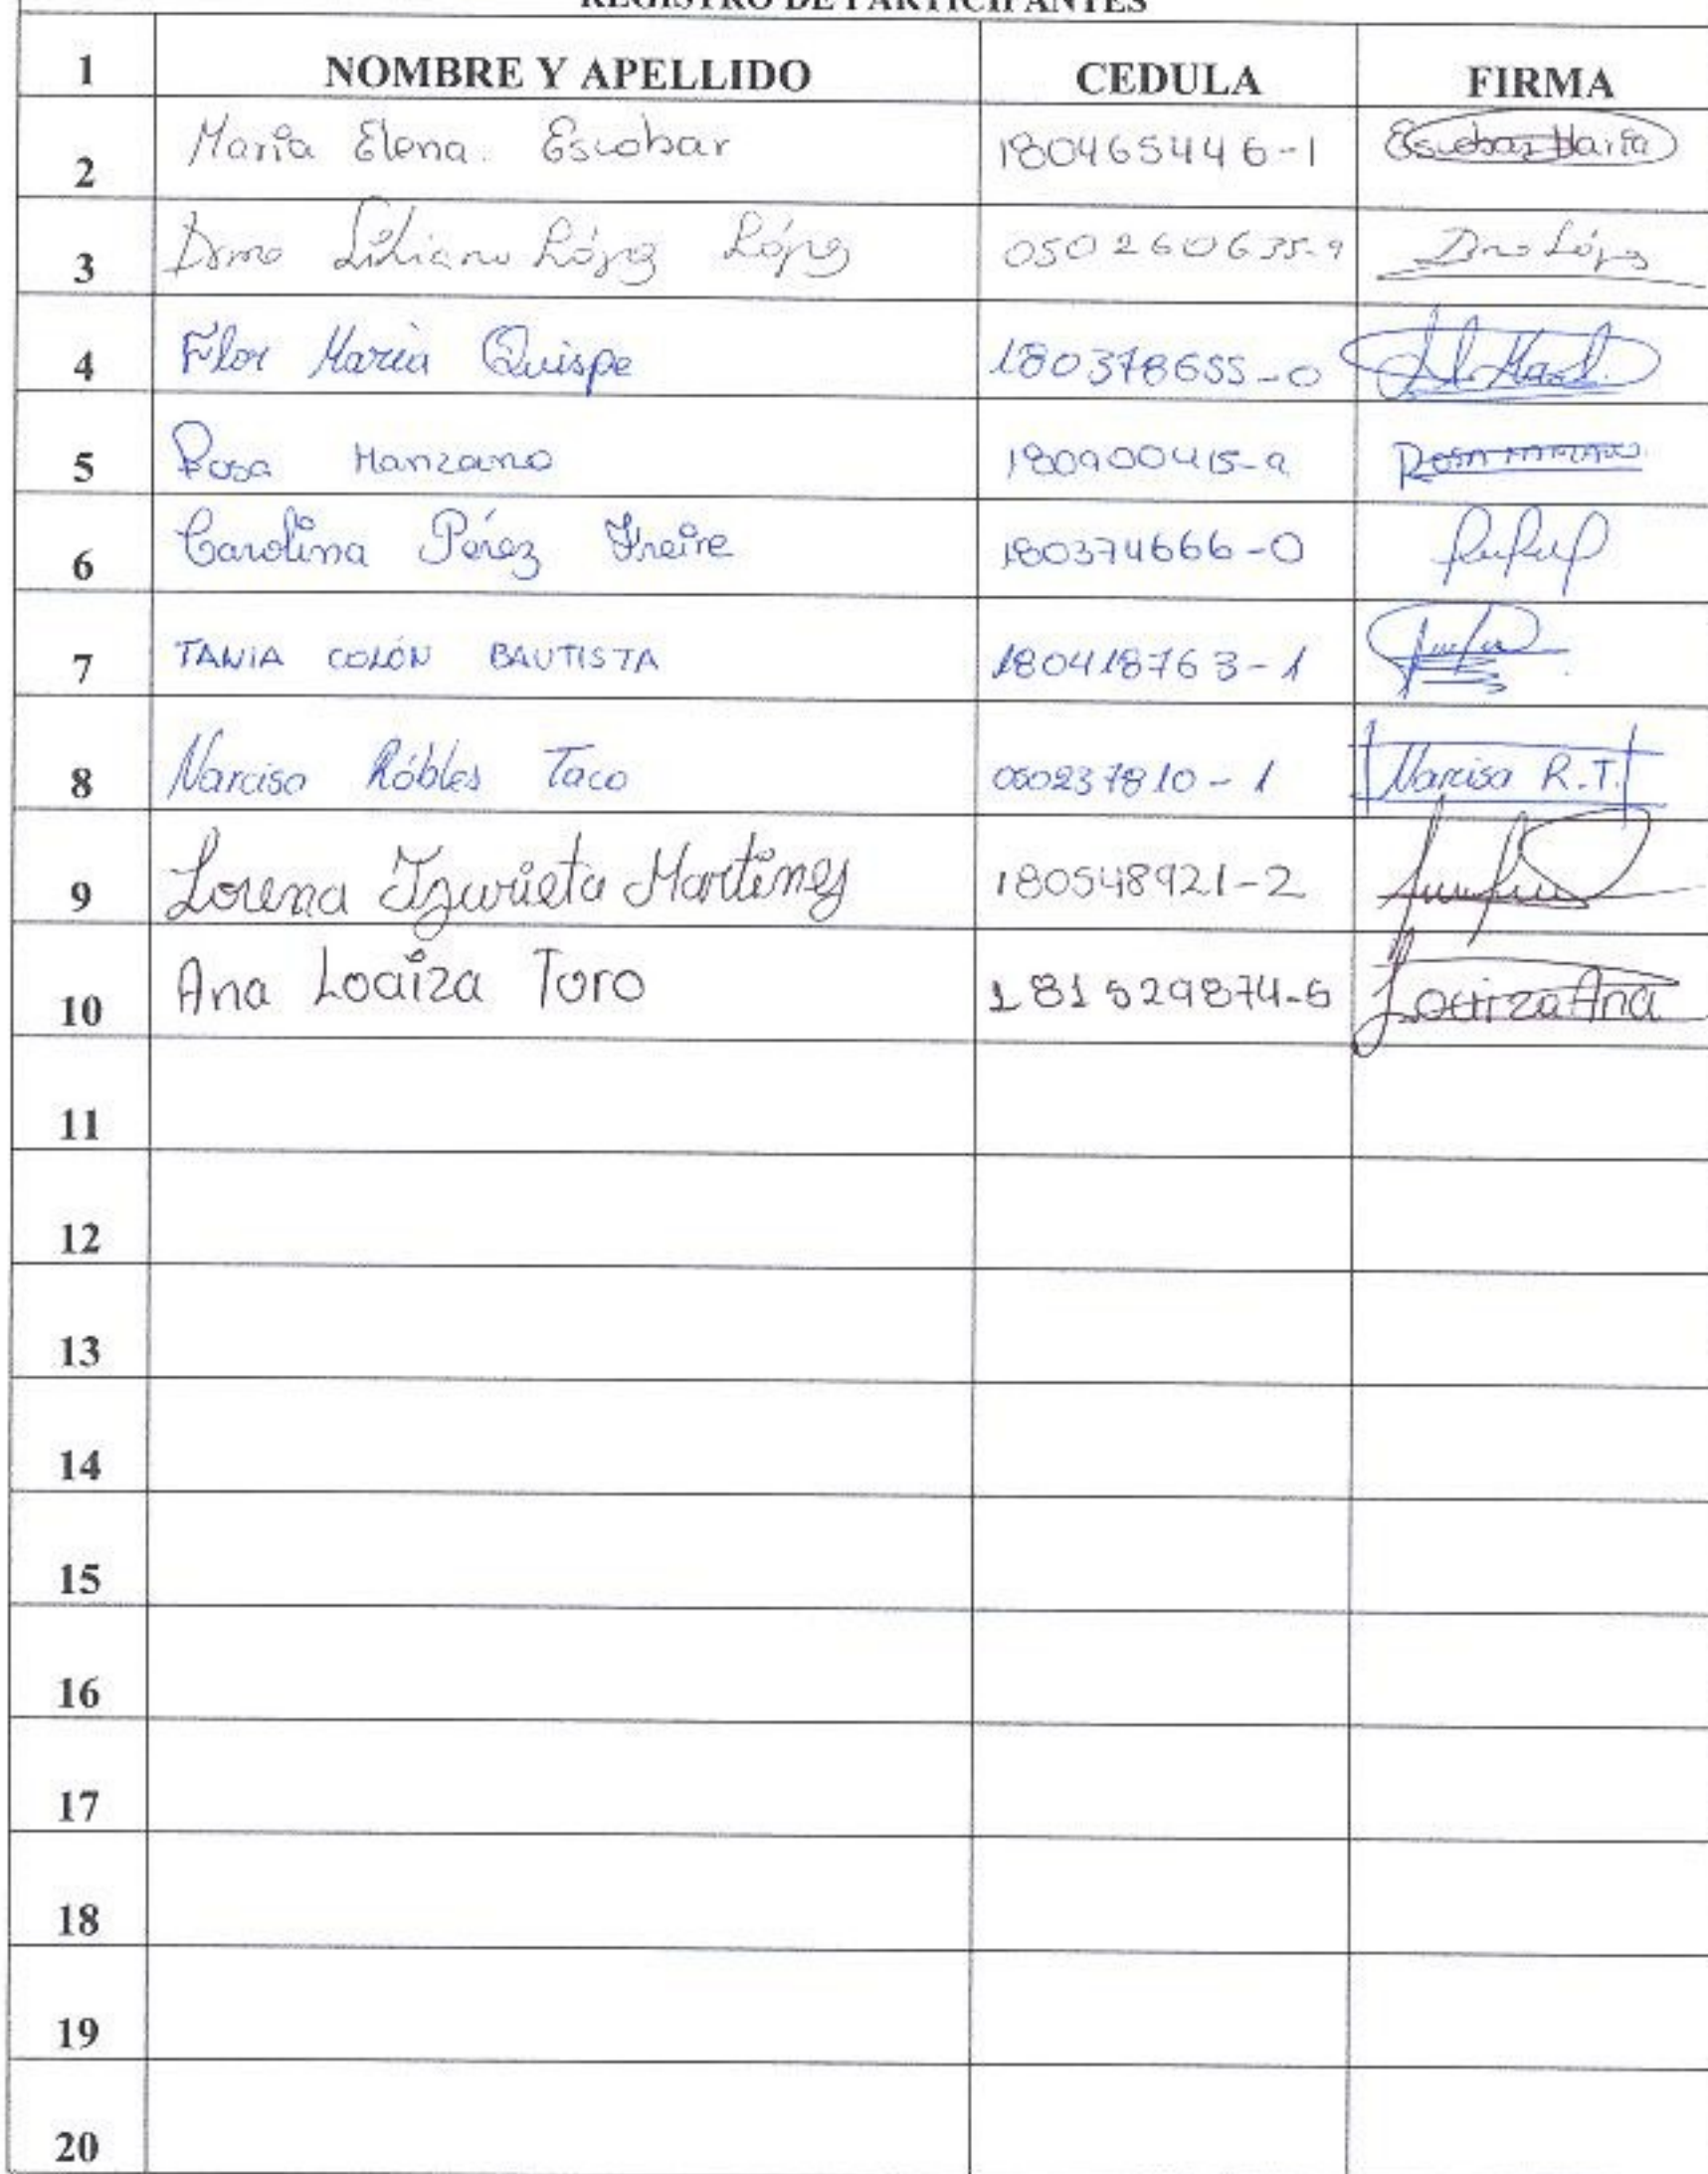 REGISTRO DE PARTICIPANTES
1 NOMBRE Y APELLIDO CEDULA FIRMA
2 María Elena. Escobar 180465446-1 Escobar María
3 Liliana López López 050260635-9 López
4 Flor María Quispe 180378655-0
5 Rosa Manzano 180900415-9 ROSA MANZANO
6 Carolina Pérez Freire 180374666-0
7 TANIA COLÓN BAUTISTA 180418763-1
8 Narcisa Róbles Taco 050237810-1 Narcisa R.T.
9 Lorena Izurieta Martínez 180548921-2
10 Ana Loaiza Toro 181529874-5 Loaiza Ana
11
12
13
14
15
16
17
18
19
20